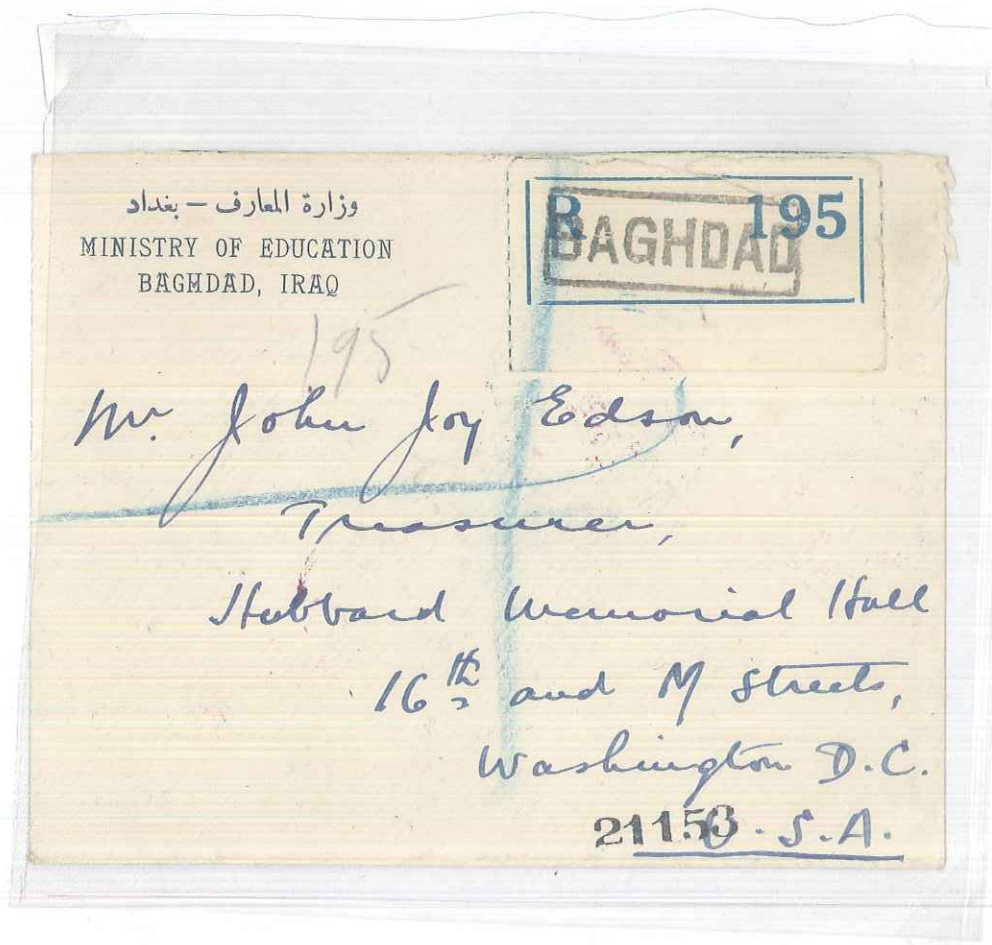 وزارة المعارف — بغداد
MINISTRY OF EDUCATION
BAGHDAD, IRAQ
R 195
BAGHDAD
195
Mr. John Joy Edson,
Treasurer,
Hubbard Memorial Hall
16th and M Streets,
Washington D.C.
U.S.A.
21153